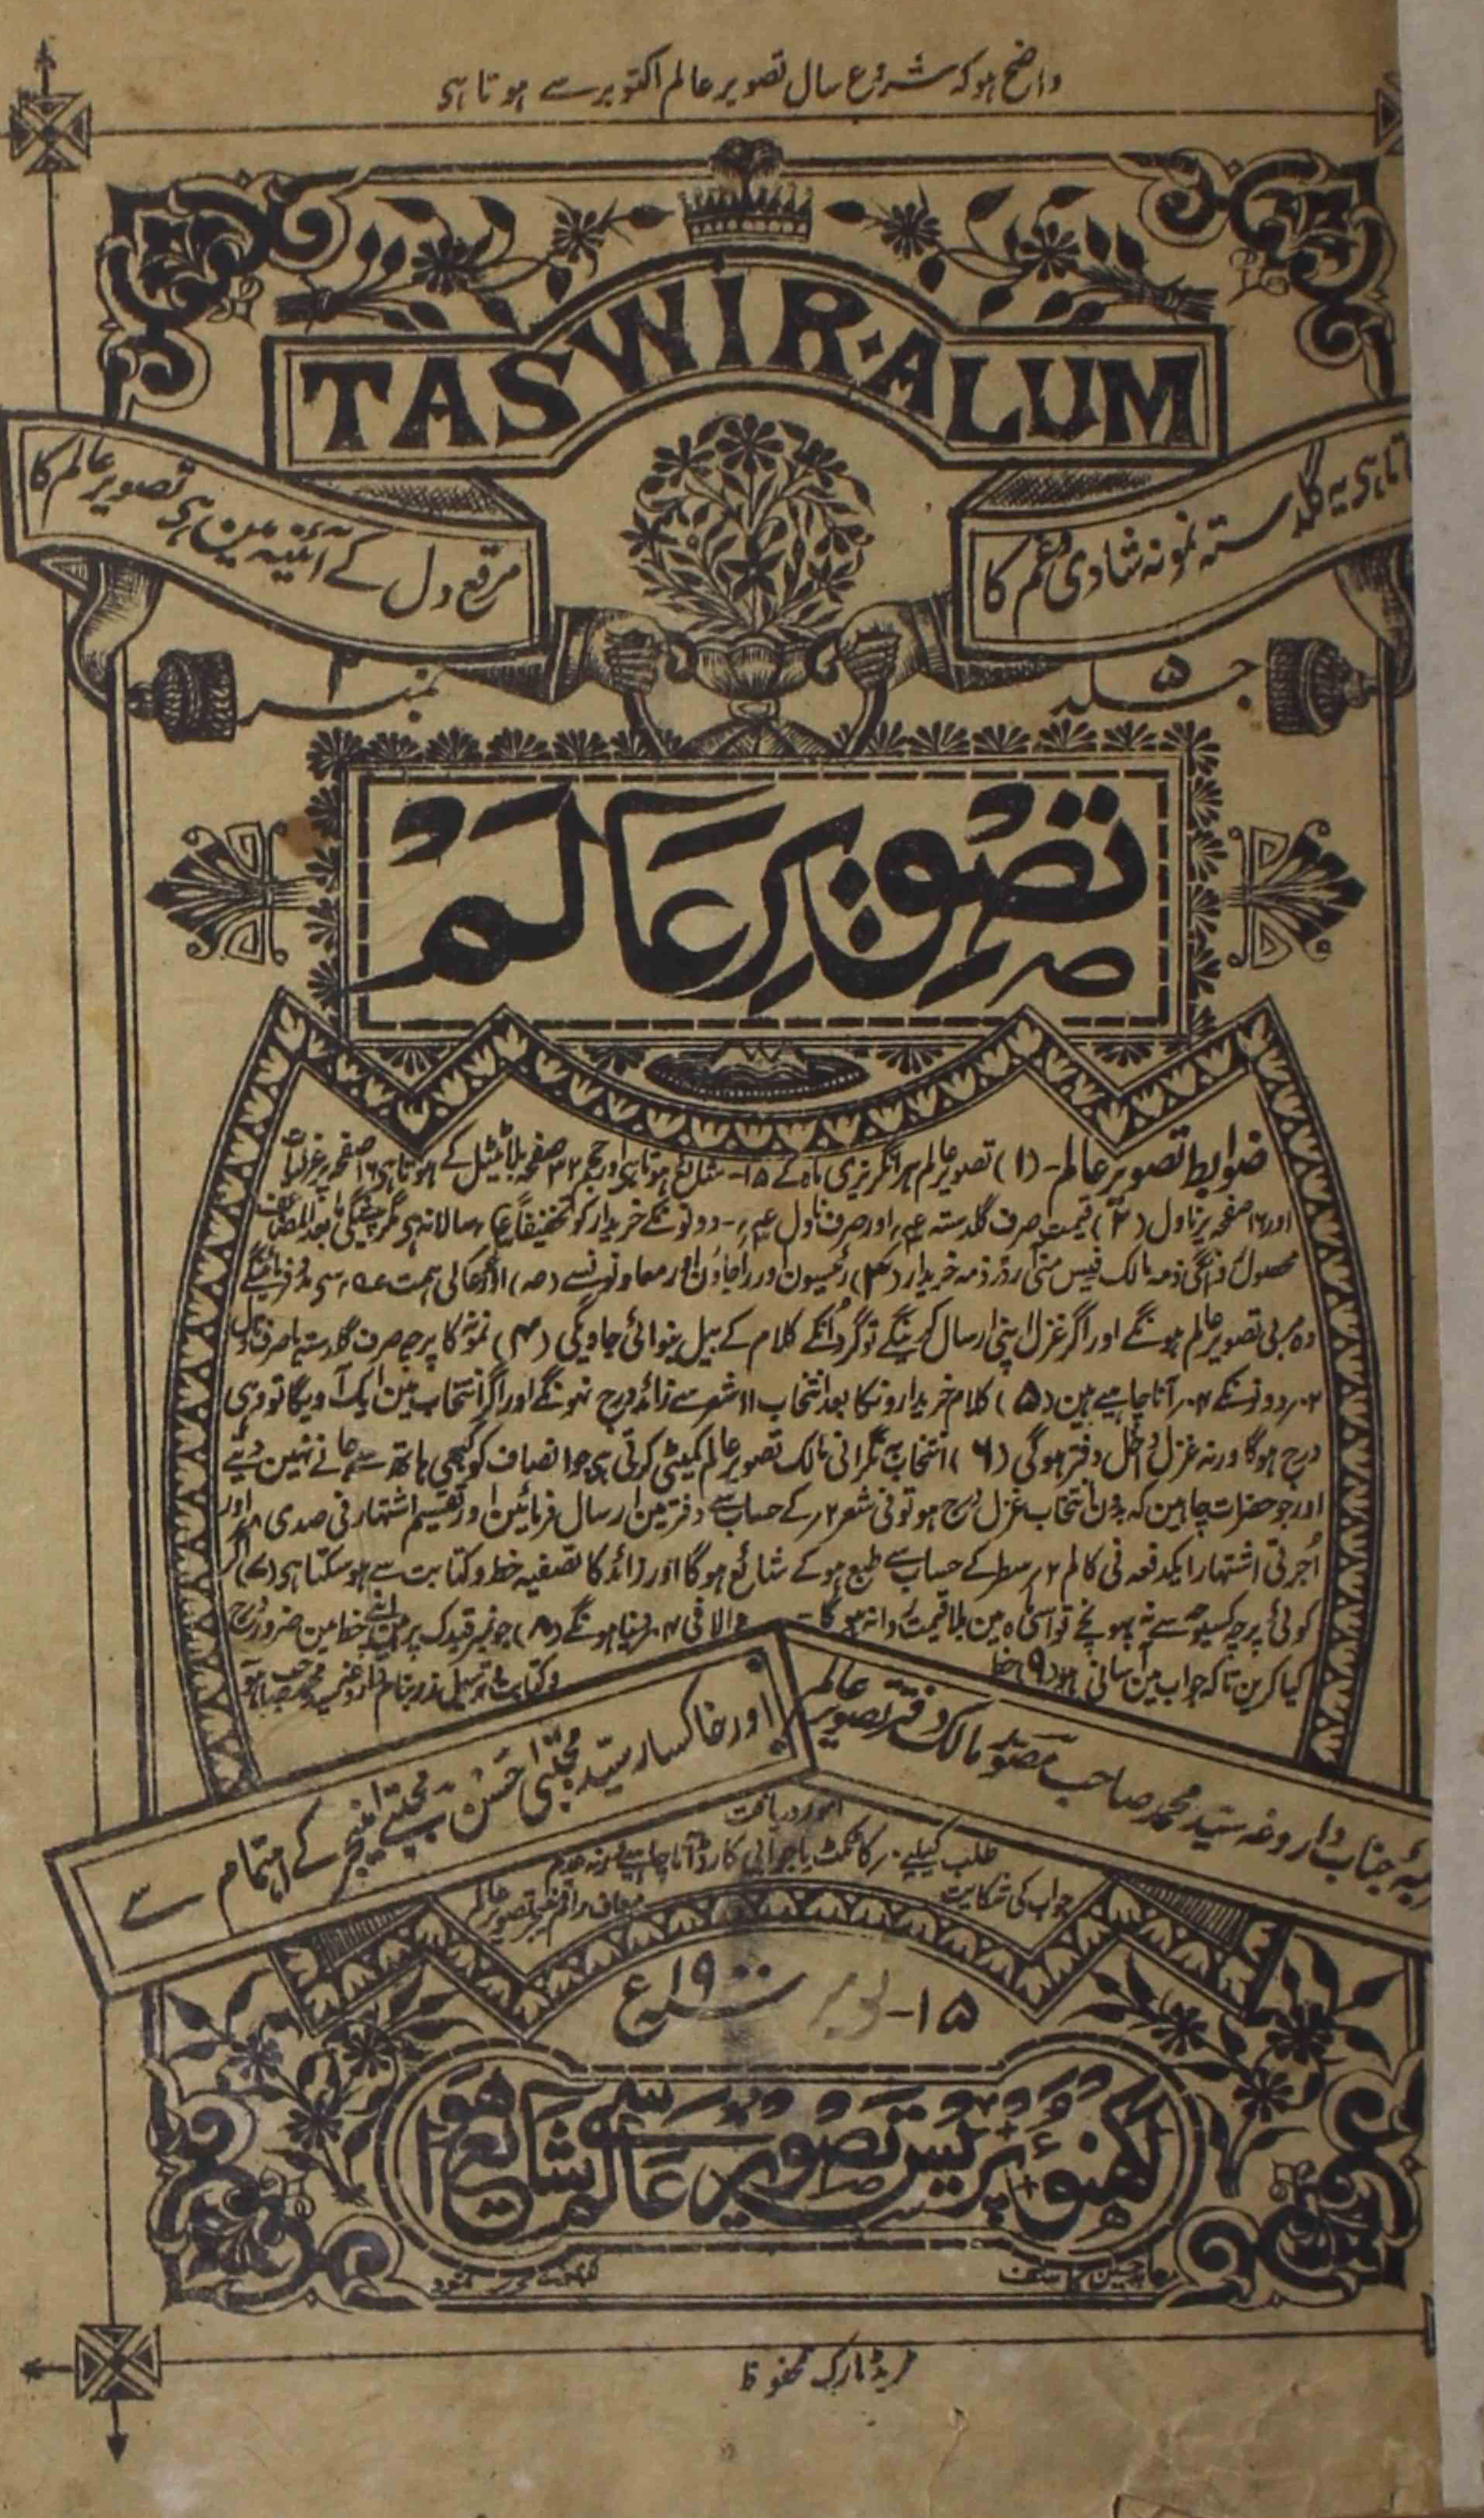 واضح ہو کہ شروع سال تصویر عالم اکتوبر سے ہوتا ہی
TASWIR·ALUM
تا ہی یہ گلدستہ نمونہ شادی و غم کا
مرقع دل کے آئینہ مین ہی تصویر عالم کا
جلد ۵
نمبر ۲
تصویر عالم
ضوابط تصویر عالم - (۱) تصویر عالم ہر انگریزی ماہ کے ۱۵- شائع ہوتا ہی اور حجم ۳۲ صفحہ بلا ٹیٹل کے ہوتا ہی ۱۶ صفحہ پر غزلیات
اور ۱۶ صفحہ پر ناول (۲) قیمت صرف گلدستہ اور صرف ناول دونونکے خریدار کو تخفیفاً سالانہ ہی مگر پیشگی بعد المضاعف
محصول ڈانگی ذمہ مالک فیس منی آرڈر ذمہ خریدار (۳) رئیسون اور راجاؤن اور معاونونسے اگر عالی ہمت سے مدد فرمائینگے
وہ مربی تصویر عالم ہونگے اور اگر غزل اپنی ارسال کرینگے تو گرد اُنکے کلام کے بیل بنوائی جاویگی (۴) نمونہ کا پرچہ صرف گلدستہ یا صرف ناول
۲؍ دونونکے ۴؍ آنا چاہیے ہین (۵) کلام خریدارونکا بعد انتخاب ۱۱ شعر سے زائد درج نہونگے اور اگر انتخاب مین ایک آویگا تو وہی
درج ہوگا ورنہ غزل داخل دفتر ہوگی (۶) انتخاب بہ نگرانی مالک تصویر عالم کمیٹی کرتی ہی جو انصاف کو کبھی ہاتھ سے جانے نہین دیتے
اور جو حضرات چاہین کہ بدون انتخاب غزل درج ہو تو فی شعر ۲؍ کے حساب سے دفتر مین ارسال فرمائین اور تقسیم اشتہار فی صدی ۸؍ اور
اُجرتی اشتہار ایکدفعہ فی کالم ۲؍ سطر کے حساب سے طبع ہو کے شائع ہوگا اور زائد کا تصفیہ خط و کتابت سے ہو سکتا ہی (۷) اگر
کوئی پرچہ کسیوجہ سے نہ پہونچے تو اسی ماہ مین بلا قیمت روانہ ہوگا والا فی ۴؍ دینا ہونگے (۸) جو نمبر قید کہ پر ہین اپنے خط مین ضرور درج
کیا کرین تاکہ جواب مین آسانی ہو (۹) خط و کتابت و ترسیل زر بنام داروغہ سید محمد صاحب ہو
جناب داروغہ سید محمد صاحب مصوّر مالک دفتر تصویر عالم
اور خاکسار سید مجتبیٰ احسن مجتبےٰ منیجر کے اہتمام سے
امور دریافت
طلب کیلیے ۰؍ کا ٹکٹ یا جوابی کارڈ آنا چاہیے ورنہ عدم
جواب کی شکایت معاف راقم منیجر تصویر عالم
۱۵- نومبر سنہ ۱۹۰۰ع
لکھنؤ پریس تصویر عالم سے شائع ہوا
ٹریڈ مارک محفوظ